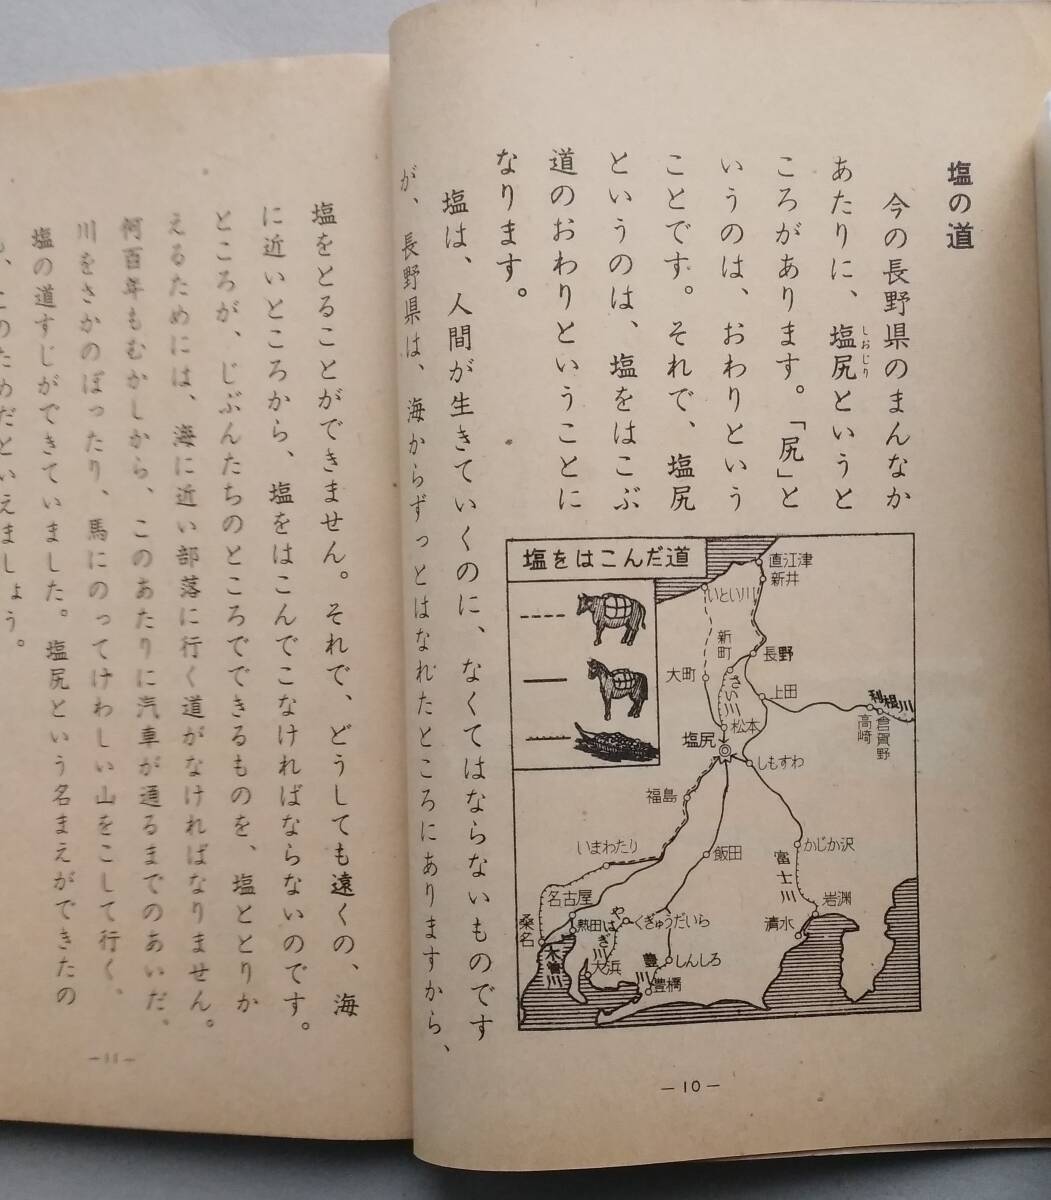 塩の道
今の長野県のまんなか
あたりに、塩尻というと
しおじり
ころがあります。「尻」と
いうのは、おわりという
ことです。それで、塩尻
というのは、塩をはこぶ
道のおわりということに
なります。
塩は、人間が生きていくのに、なくてはならないものです
が、長野県は、海からずっとはなれたところにありますから、
塩をはこんだ道
直江津
新井
いとい川
新町
長野
大町
さい川
上田
利根川
倉賀野
高崎
松本
塩尻
しもすわ
福島
いまわたり
飯田
かじか沢
富士川
岩淵
清水
名古屋
桑名
熱田
やはぎ川
くぎゅうだいら
木曽川
大浜
豊川
しんしろ
豊橋
－10－
塩をとることができません。それで、どうしても遠くの、海
に近いところから、塩をはこんでこなければならないのです。
ところが、じぶんたちのところでできるものを、塩ととりか
えるためには、海に近い部落に行く道がなければなりません。
何百年もむかしから、このあたりに汽車が通るまでのあいだ、
川をさかのぼったり、馬にのってけわしい山をこして行く、
塩の道すじができていました。塩尻という名まえができたの
も、このためだといえましょう。
－11－